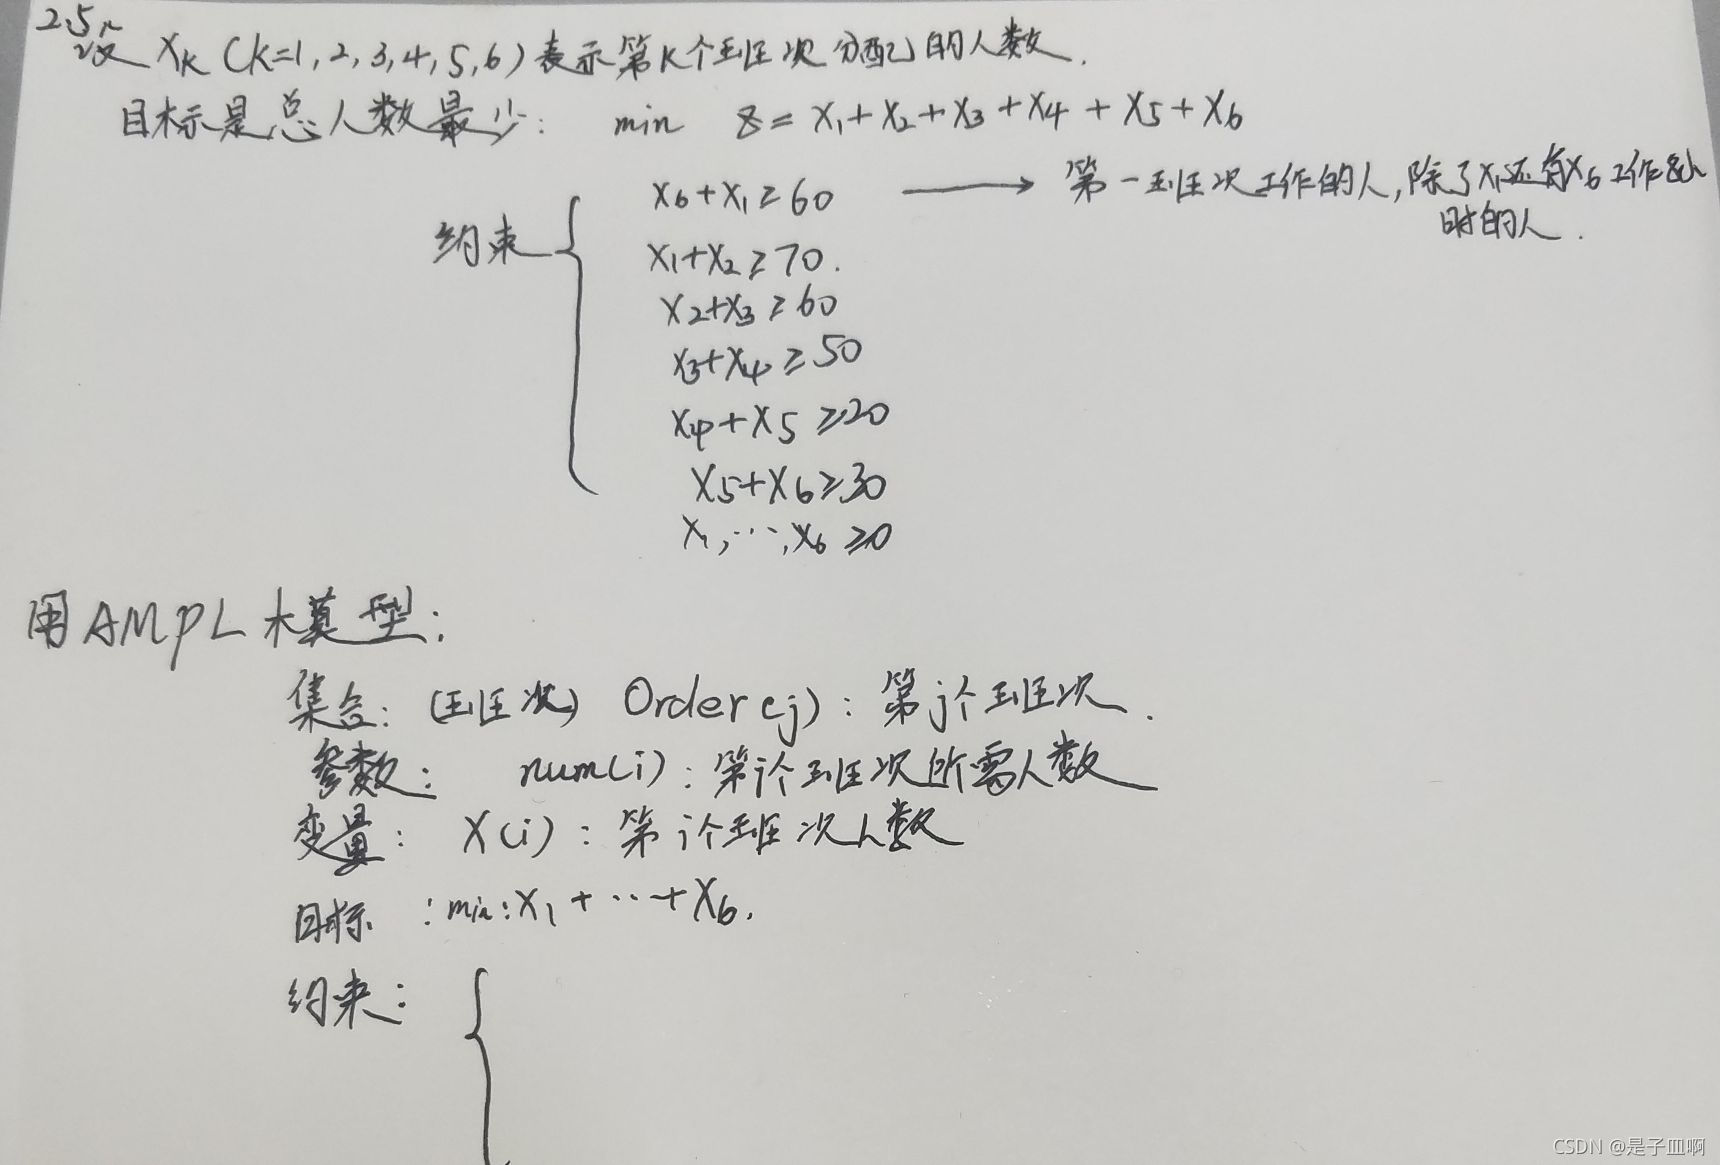 2.5
设 Xk (k=1,2,3,4,5,6) 表示第k个班次分配的人数.
目标是总人数最少: min z = X1+X2+X3+X4+X5+X6
X6+X1≥60 → 第一班次工作的人,除了X1还有X6工作8小时的人.
约束 {
X1+X2≥70.
X2+X3≥60
X3+X4≥50
X4+X5≥20
X5+X6≥30
X1,…,X6≥0
用AMPL模型:
集合: (班次) Order(j): 第j个班次.
参数: num(i): 第i个班次所需人数
变量: X(i): 第i个班次人数
目标: min: X1+…+X6.
约束: {
CSDN @是子皿啊